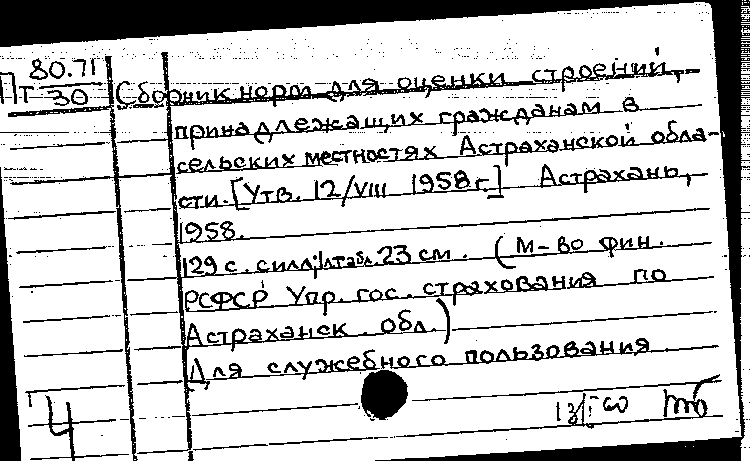 80.71
Пт 30 Сборник норм для оценки строений,
принадлежащих гражданам в
сельских местностях Астраханской обла-
сти. [Утв. 12/VIII 1958 г.] Астрахань,
1958.
129 с. с илл; 1 л табл. 23 см. (М-во фин.
РСФСР Упр. гос. страхования по
Астраханск. обл.)
Для служебного пользования
4 13/I 60